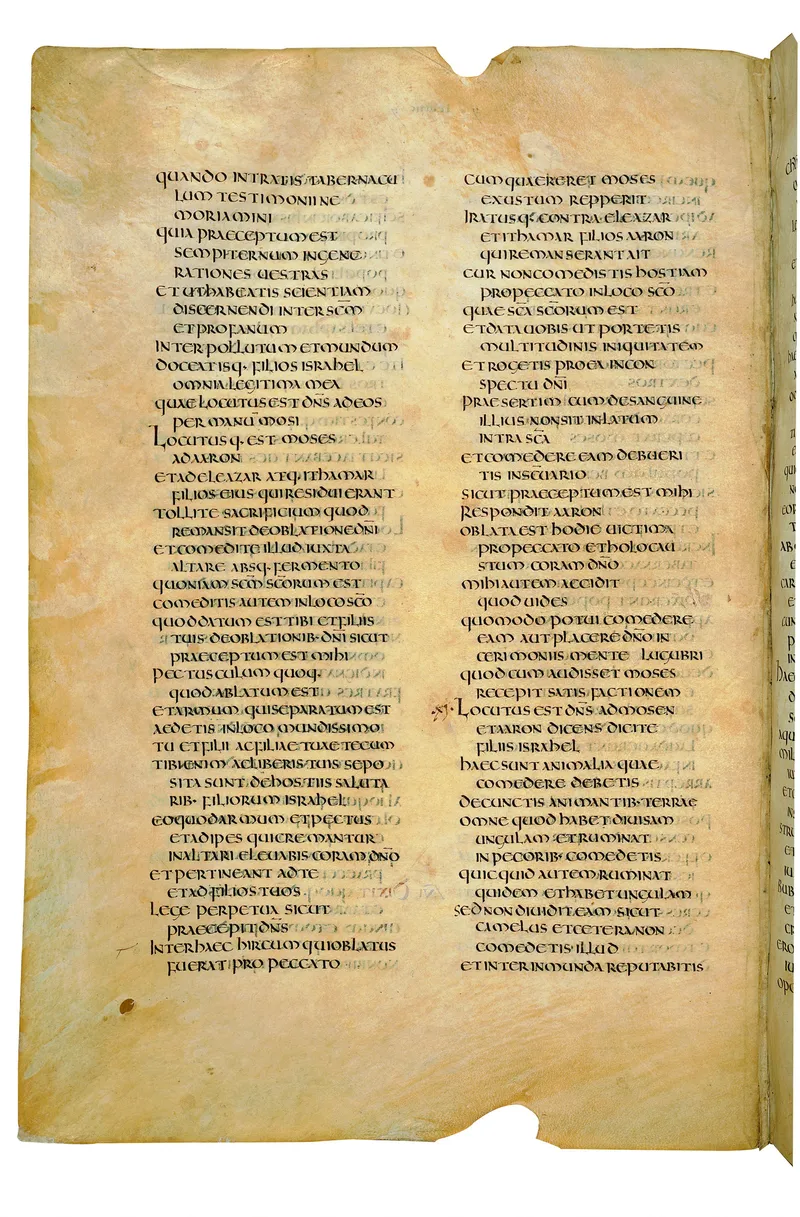 QUANDO INTRATIS TABERNACU
LUM TESTIMONII NE
MORIAMINI
QUIA PRAECEPTUM EST
SEMPITERNUM IN GENE
RATIONES UESTRAS
ET UT HABEATIS SCIENTIAM
DISCERNENDI INTER SC̅M
ET PROFANUM
INTER POLLUTUM ET MUNDUM
DOCEATISQ· FILIOS ISRAHEL
OMNIA LEGITIMA MEA
QUAE LOCUTUS EST DN̅S AD EOS
PER MANU̅ MOSI
LOCUTUSQ· EST MOSES
AD AARON
ET AD ELEAZAR ATQ· ITHAMAR
FILIOS EIUS QUI RESIDUI ERANT
TOLLITE SACRIFICIUM QUOD
REMANSIT DE OBLATIONE DN̅I
ET COMEDITE ILLUD IUXTA
ALTARE ABSQ· FERMENTO
QUONIAM SC̅M SC̅ORUM EST
COMEDITIS AUTEM IN LOCO SC̅O
QUOD DATUM EST TIBI ET FILIIS
TUIS DE OBLATIONIB· DN̅I SICUT
PRAECEPTUM EST MIHI
PECTUSCULUM QUOQ·
QUOD ABLATUM EST
ET ARMUM QUI SEPARATUM EST
AEDETIS IN LOCO MUNDISSIMO
TU ET FILII AC FILIAE TUAE TECUM
TIBI ENIM AC LIBERIS TUIS SEPO
SITA SUNT DE HOSTIIS SALUTA
RIB· FILIORUM ISRAHEL
EO QUOD ARMUM ET PECTUS
ET ADIPES QUI CREMANTUR
IN ALTARI ELEUABIS CORAM DN̅O
ET PERTINEANT AD TE
ET AD FILIOS TUOS
LEGE PERPETUA SICUT
PRAECEPIT DN̅S
INTER HAEC HIRCUM QUI OBLATUS
FUERAT PRO PECCATO
CUM QUAERERET MOSES
EXUSTUM REPPERIT
IRATUSQ· CONTRA ELEAZAR
ET ITHAMAR FILIOS AARON
QUI REMANSERANT AIT
CUR NON COMEDISTIS HOSTIAM
PRO PECCATO IN LOCO SC̅O
QUAE SC̅A SC̅ORUM EST
ET DATA UOBIS UT PORTETIS
MULTITUDINIS INIQUITATEM
ET ROGETIS PRO EA IN CON
SPECTU DN̅I
PRAESERTIM CUM DE SANGUINE
ILLIUS NON SIT INLATUM
INTRA SC̅A
ET COMEDERE EAM DEBUERI
TIS IN SC̅UARIO
SICUT PRAECEPTUM EST MIHI
RESPONDIT AARON
OBLATA EST HODIE UICTIMA
PRO PECCATO ET HOLOCAU
STUM CORAM DN̅O
MIHI AUTEM ACCIDIT
QUOD UIDES
QUOMODO POTUI COMEDERE
EAM AUT PLACERE DN̅O IN
CERIMONIIS MENTE LUGUBRI
QUOD CUM AUDISSET MOSES
RECEPIT SATISFACTIONEM
·XI· LOCUTUS EST DN̅S AD MOSEN
ET AARON DICENS DICITE
FILIIS ISRAHEL
HAEC SUNT ANIMALIA QUAE
COMEDERE DEBETIS
DE CUNCTIS ANIMANTIB· TERRAE
OMNE QUOD HABET DIUISAM
UNGULAM ET RUMINAT
IN PECORIB· COMEDETIS
QUICQUID AUTEM RUMINAT
QUIDEM ET HABET UNGULAM
SED NON DIUIDIT EAM SICUT
CAMELUS ET CETERA NON
COMEDETIS ILLUD
ET INTER INMUNDA REPUTABITIS